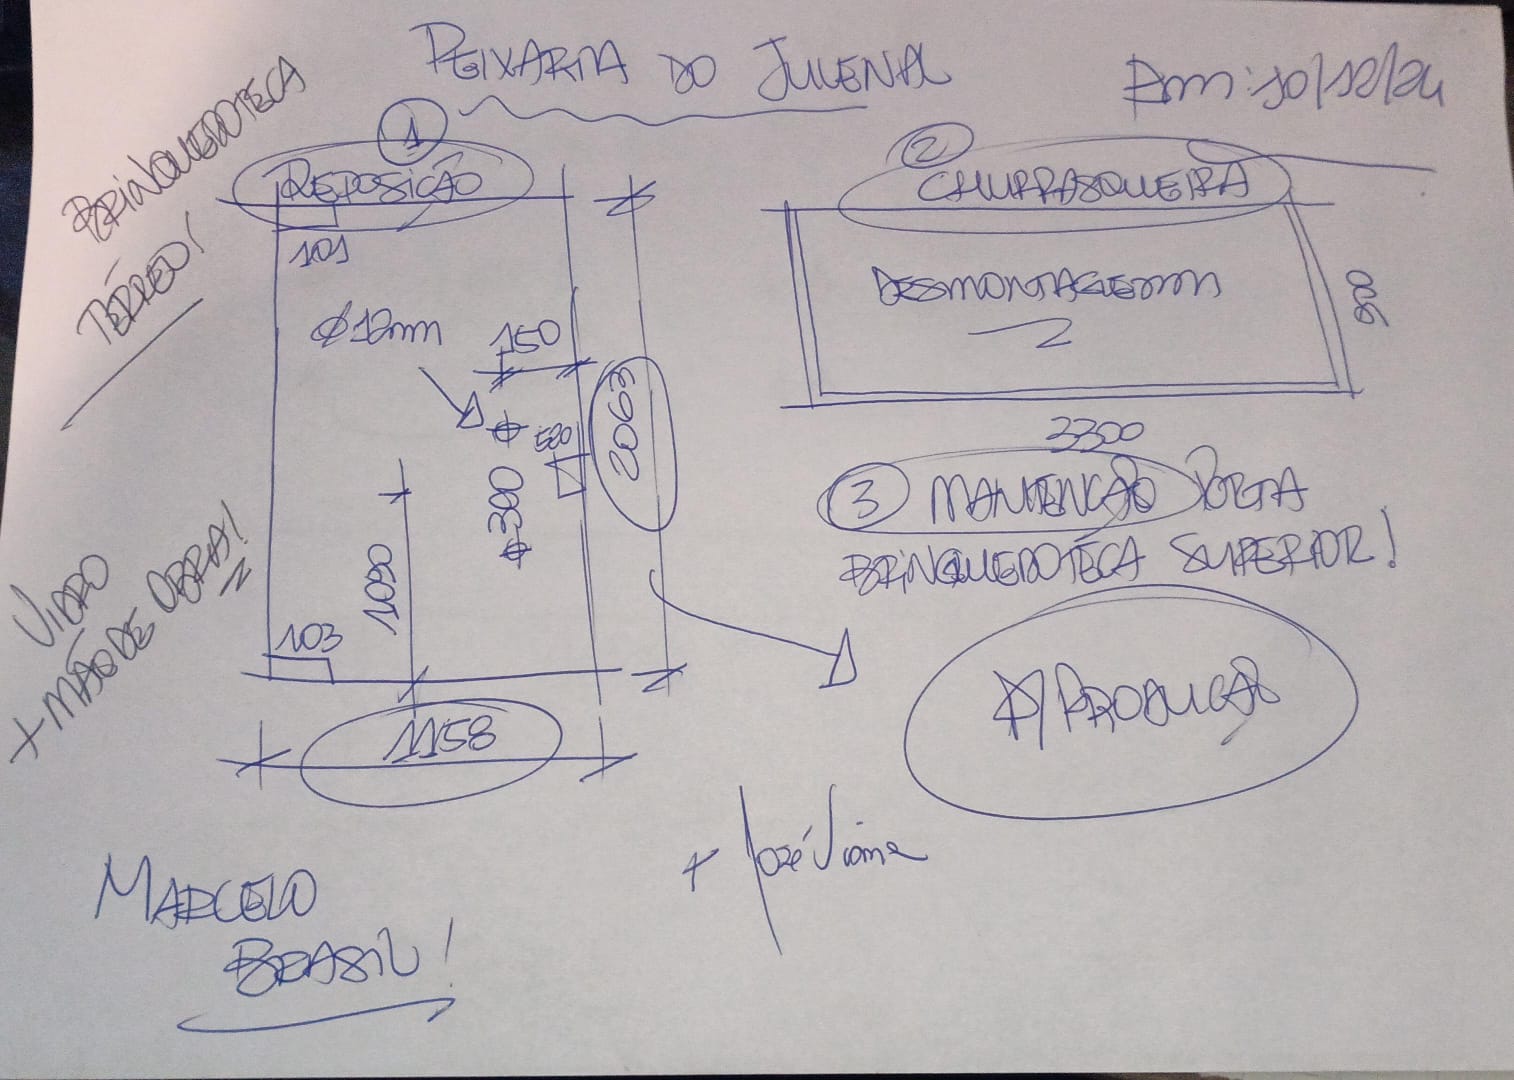 PEIXARIA DO JUVENAL
Bm: 10/12/24
BRINQUEDOTECA
TÉRREO!
1
REPOSIÇÃO
101
Ø12mm
150
520
300
2063
1090
103
1158
VIDRO
+ MÃO DE OBRA!
2
CHURRASQUEIRA
DESMONTAGEM
900
3300
3 MANUTENCÃO PORTA
BRINQUEDOTECA SUPERIOR!
P/ PRODUÇÃO
+ José Viana
MARCELO
BRASIL!